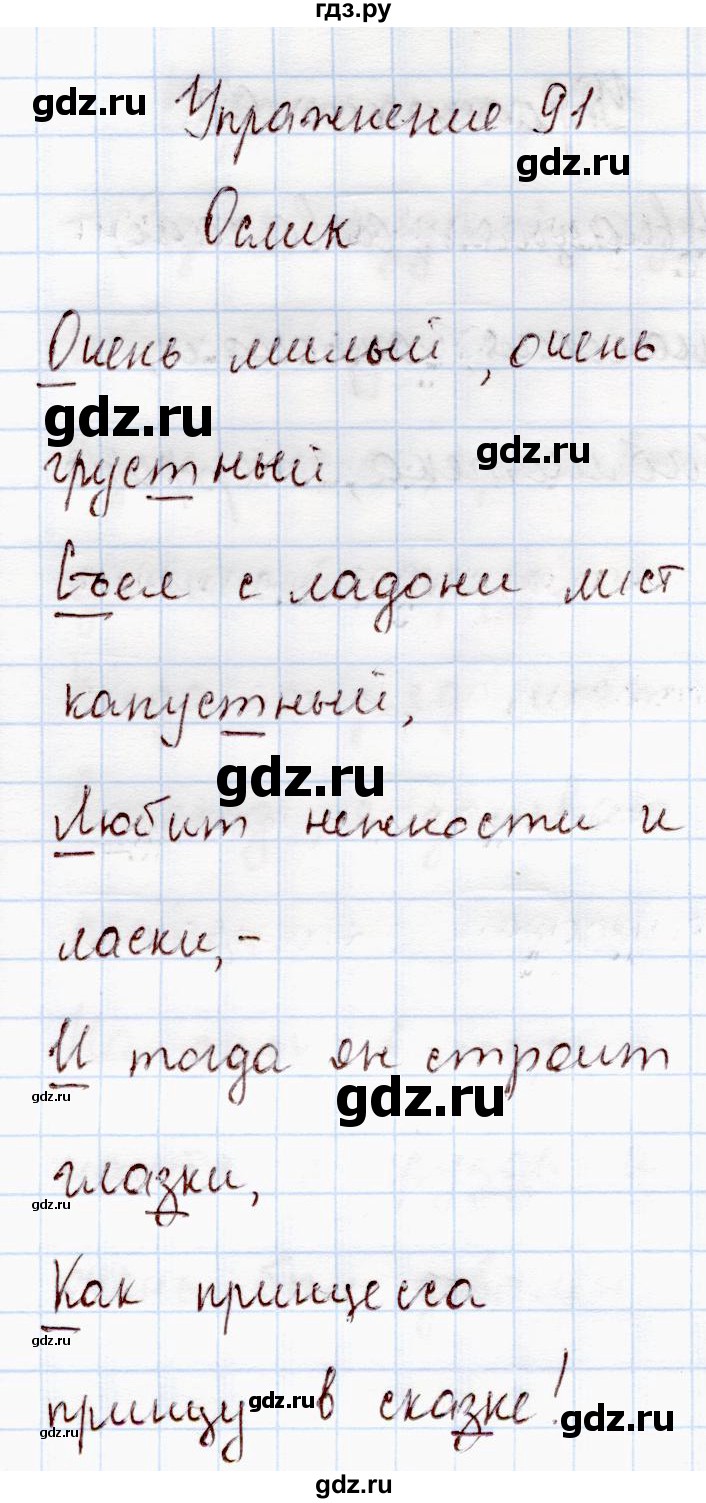 гдз.ру
gdz.ru
Упражнение 91
gdz.ru
Ослик
Очень милый, очень
gdz.ru
gdz.ru
грустный
Съел с ладони лист
капустный,
gdz.ru
Любит нежности и
ласки,-
И тогда он строит
gdz.ru
gdz.ru
глазки,
gdz.ru
Как принцесса
gdz.ru
принцу в сказке!
gdz.ru
gdz.ru
gdz.ru
gdz.ru